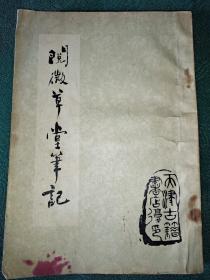 閱微草堂筆記
天津古籍
書店影印